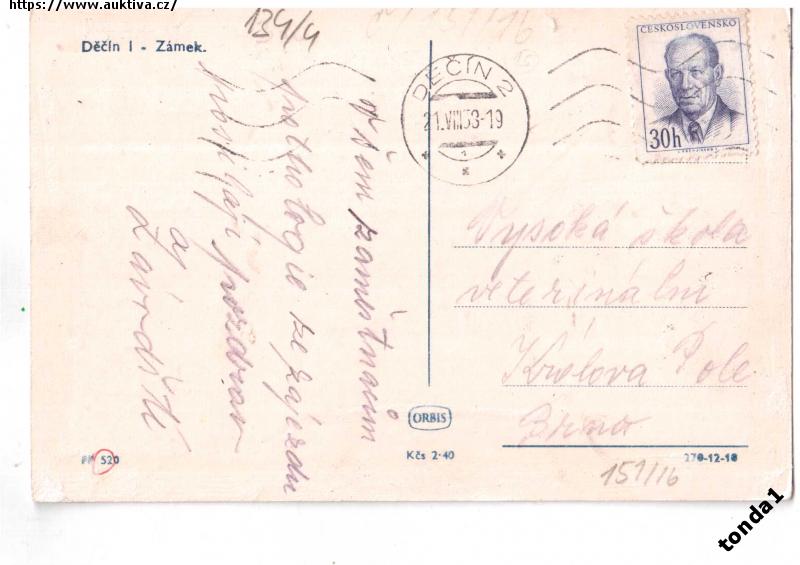 https://www.auktiva.cz/
134/4
Děčín I - Zámek.
DEČÍN 2
21.VIII.53-19
ČESKOSLOVENSKO
30h
Všem zaměstnancům
pathologie ze zájezdu
pozdrav
a
Vysoká škola
veterinální
Králova Pole
Brno
ORBIS
PF 520
Kčs 2·40
270-12-18
151/16
tonda1